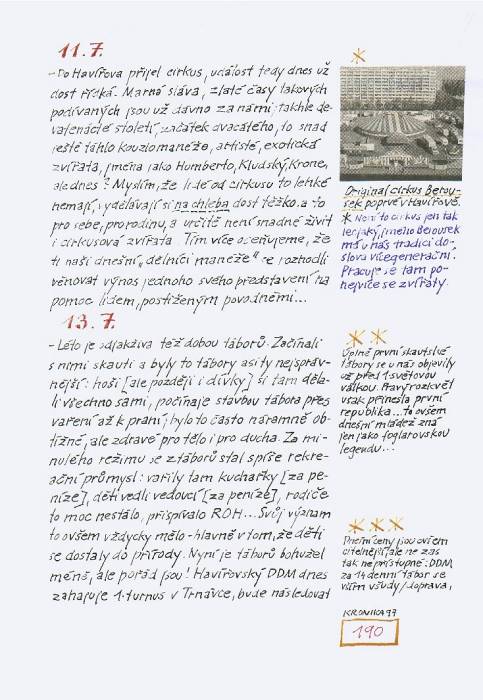 11.7.
-Do Havířova přijel cirkus, událost tedy dnes už
dost řídká. Marná sláva, zlaté časy takových
podívaných jsou už dávno za námi; takhle de-
vatenácté století, začátek dvacátého, to snad
ještě táhlo kouzlo manéže, artisté, exotická
zvířata, jména jako Humberto, Kludský, Krone,
ale dnes? Myslím, že lidé od cirkusu to lehké
nemají, vydělávají si na chleba dost těžko, a to
pro sebe, pro rodinu, a určitě není snadné živit
i cirkusová zvířata. Tím více oceňujeme, že
ti naši dnešní „dělníci manéže" se rozhodli
věnovat výnos jednoho svého představení na
pomoc lidem, postiženým povodněmi...
13.7.
-Léto je odjakživa též dobou táborů. Začínali
s nimi skauti a byly to tábory asi ty nejspráv-
nější: hoši [ale později i dívky] si tam děla-
li všechno sami, počínaje stavbou tábora přes
vaření až k praní; bylo to často náramně ob-
tížné, ale zdravé pro tělo i pro ducha. Za mi-
nulého režimu se z táborů stal spíše rekre-
ační průmysl: vařily tam kuchařky [za pe-
níze], děti vedli vedoucí [za peníze], rodiče
to moc nestálo, přispívalo ROH... Svůj význam
to ovšem vždycky mělo - hlavně v tom, že děti
se dostaly do přírody. Nyní je táborů bohužel
méně, ale pořád jsou! Havířovský DDM dnes
zahajuje 1. turnus v Trnávce, bude následovat
*
Original cirkus Berou-
sek poprvé v Havířově.
* Není to cirkus jen tak
lecjaký, jméno Berousek
má u nás tradici do-
slova vícegenerační.
Pracuje se tam po-
nejvíce se zvířaty.
**
Úplně první skautské
tábory se u nás objevily
už před 1. světovou
válkou. Pravý rozkvět
však přinesla první
republika... to ovšem
dnešní mládež zná
jen jako foglarovskou
legendu...
***
Dnešní ceny jsou ovšem
citelnější, ale ne zas
tak nepřístupné: DDM
za 14denní tábor se
vším všudy /doprava,
KRONIKA 97
190